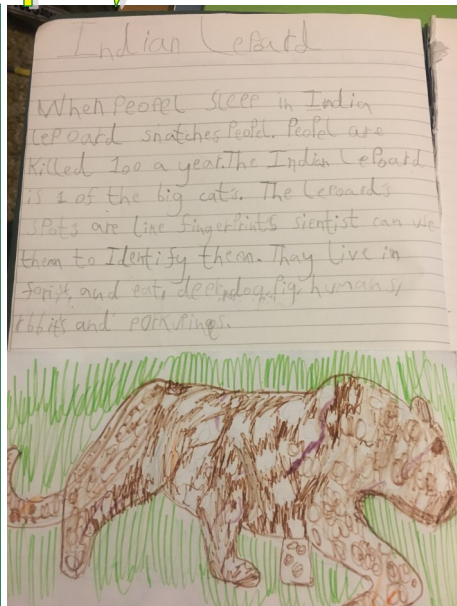 Indian Lepard
When Peopel sleep in India
Lepoard snatches Peopel. Peopel are
killed 100 a year. The Indian Lepoard
is 1 of the big cats. The Lepoards
spots are line fingerprints sientist can use
them to Identify them. Thay live in
forist, and eat, deer, dog, Pig, humans,
rbbits and porkpings.